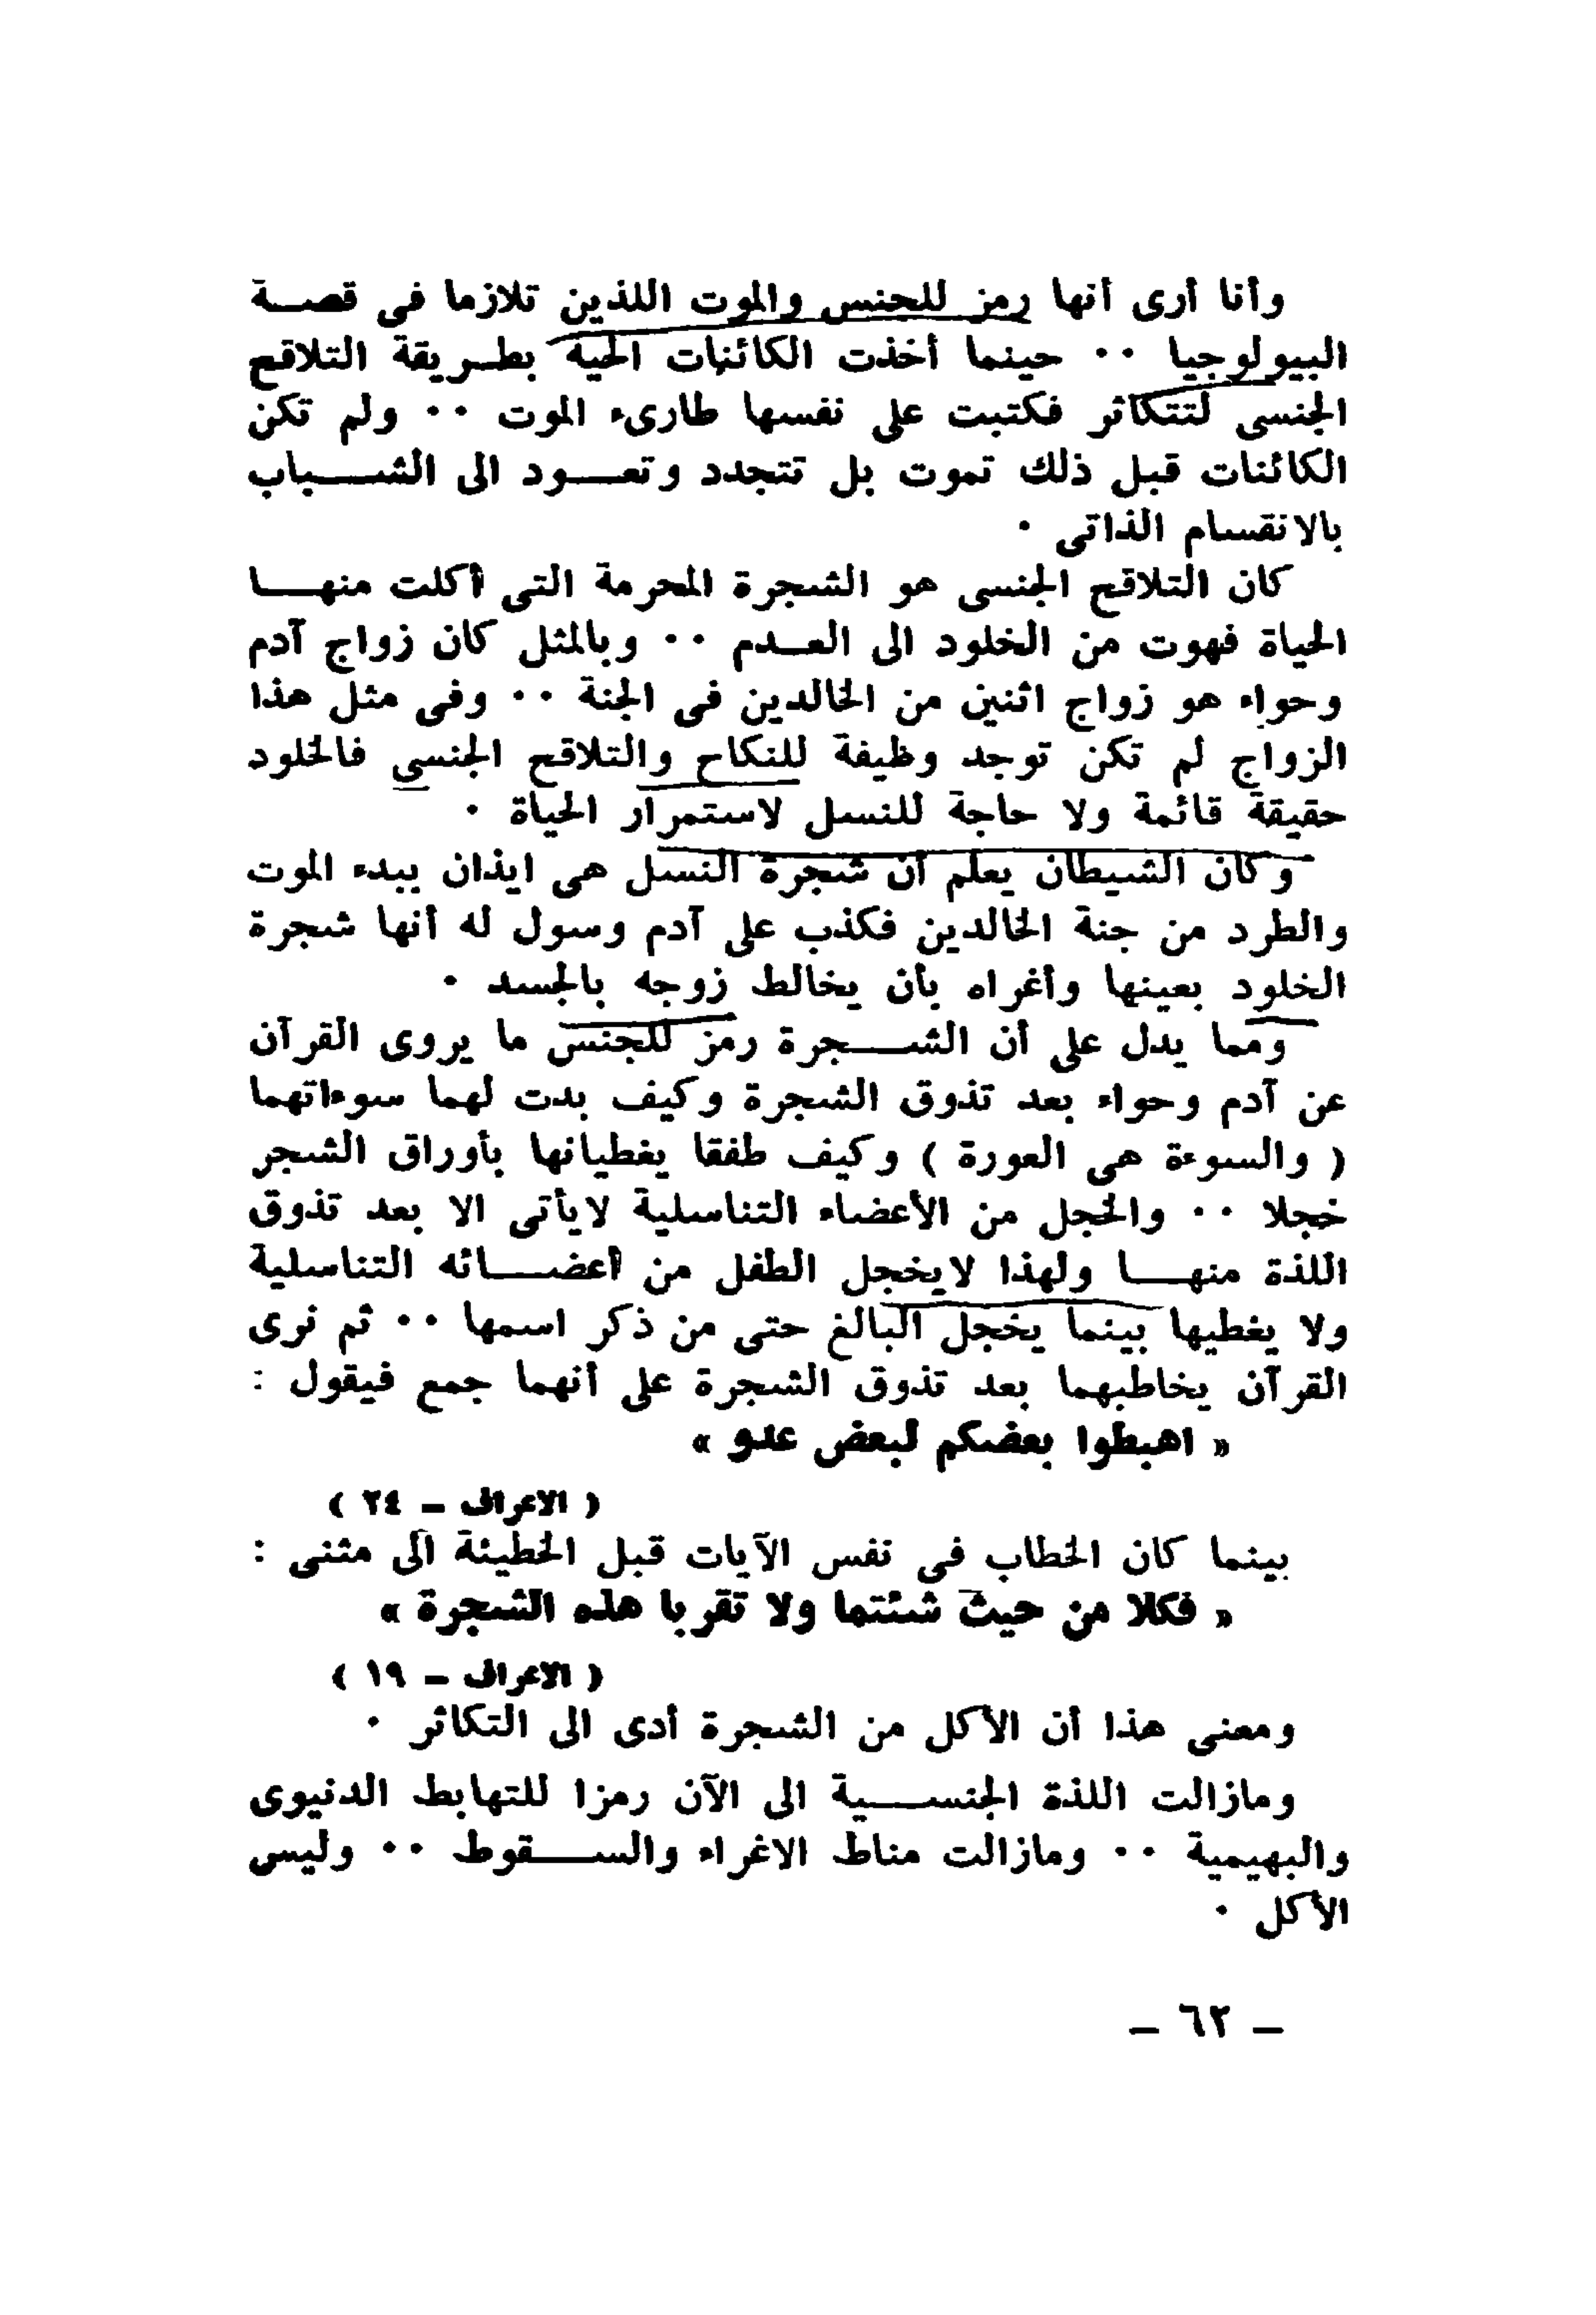 وأنا أرى أنها رمز للجنس والموت اللذين تلازما فى قصة
البيولوجيا ٠٠ حينما أخذت الكائنات الحية بطريقة التلاقح
الجنسى لتتكاثر فكتبت على نفسها طارىء الموت ٠٠ ولم تكن
الكائنات قبل ذلك تموت بل تتجدد وتعود الى الشباب
بالانقسام الذاتى ٠
كان التلاقح الجنسى هو الشجرة المحرمة التى أكلت منها
الحياة فهوت من الخلود الى العدم ٠٠ وبالمثل كان زواج آدم
وحواء هو زواج اثنين من الخالدين فى الجنة ٠٠ وفى مثل هذا
الزواج لم تكن توجد وظيفة للنكاح والتلاقح الجنسى فالخلود
حقيقة قائمة ولا حاجة للنسل لاستمرار الحياة ٠
وكان الشيطان يعلم أن شجرة النسل هى ايذان ببدء الموت
والطرد من جنة الخالدين فكذب على آدم وسول له أنها شجرة
الخلود بعينها وأغراه بأن يخالط زوجه بالجسد ٠
ومما يدل على أن الشجرة رمز للجنس ما يروى القرآن
عن آدم وحواء بعد تذوق الشجرة وكيف بدت لهما سوءاتهما
( والسوءة هى العورة ) وكيف طفقا يغطيانها بأوراق الشجر
خجلا ٠٠ والخجل من الأعضاء التناسلية لايأتى الا بعد تذوق
اللذة منها ولهذا لايخجل الطفل من أعضائه التناسلية
ولا يغطيها بينما يخجل البالغ حتى من ذكر اسمها ٠٠ ثم نرى
القرآن يخاطبهما بعد تذوق الشجرة على أنهما جمع فيقول :
« اهبطوا بعضكم لبعض عدو »
( الاعراف – ٢٤ )
بينما كان الخطاب فى نفس الآيات قبل الخطيئة الى مثنى :
« فكلا من حيث شئتما ولا تقربا هذه الشجرة »
( الاعراف – ١٩ )
ومعنى هذا أن الأكل من الشجرة أدى الى التكاثر ٠
ومازالت اللذة الجنسية الى الآن رمزا للتهابط الدنيوى
والبهيمية ٠٠ ومازالت مناط الاغراء والسقوط ٠٠ وليس
الأكل ٠
– ٦٢ –